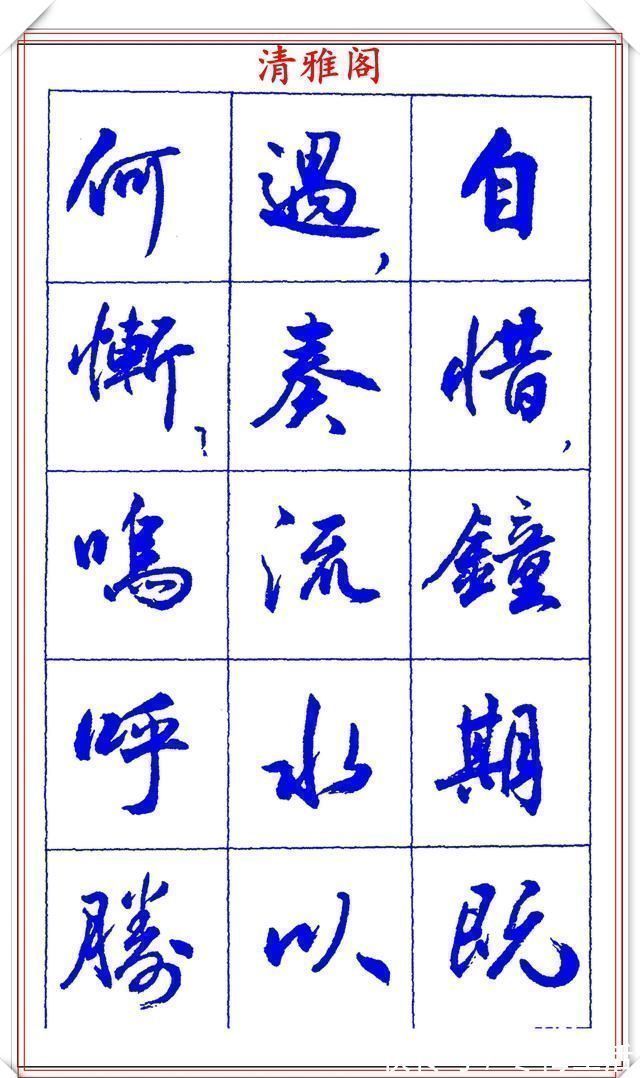 清雅阁
自惜,鐘期既
遇,奏流水以
何慚?嗚呼勝